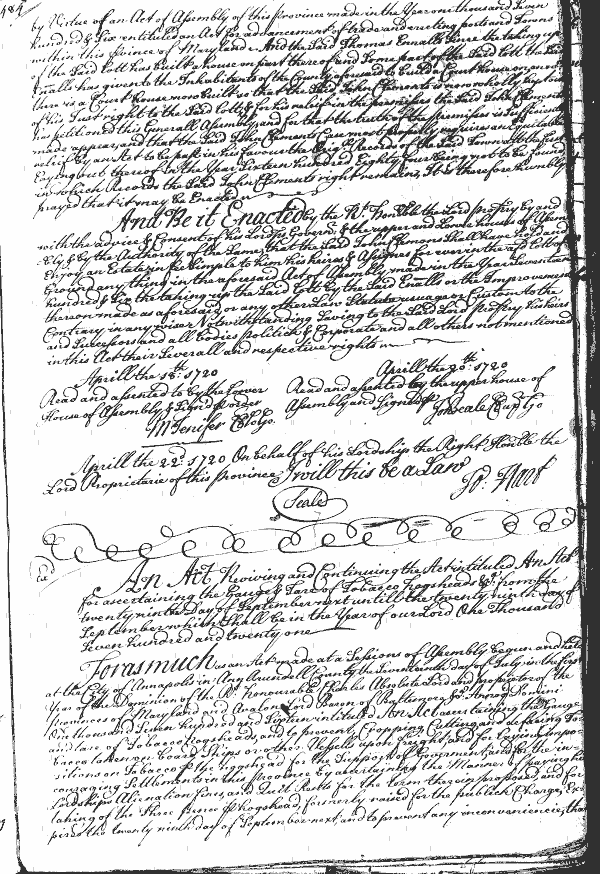 484
by Virtue of an Act of Assembly of this Province made in the Year one thousand Seven
hundred & Six entituled an Act for advancement of trade and erecting ports and Towns
within this Province of Maryland & And the Said Thomas Ennalls Since the taking up
of the Said Lott has built a house on part thereof and Some part of the Said Lott the Said
Ennalls has given to the Inhabitants of the County aforesaid to build a Court house on and
there is a Court house now built so that the Said John Clements is now wholly
of his Just right to the Said Lott & for his relief in the premisses the Said John Clements
has petitioned this Generall Assembly and for that the truth of the premisses is Sufficiently
made appear, and that the Said John Clements Case most properly requires an Equitable
relief by an Act to be past in his favour the Records of the Said Town
Laying out thereof in the Year Sixteen hundred Eighty four being not to be found
in which Records the Said John Clements right remains, It is therefore humbly
prayed that it may be Enacted
And Be it Enacted by the Rt. Honble the Lord Proprietary by and
with the advice & Consent of his Lordships Governor & the upper and Lower houses of Assem
bly & by the Authority of the Same that the Said John Clemons Shall have hold and
Enjoy an Estate in fee Simple to him his heirs & Assignes for ever in the Said Lott of
Ground any thing in the aforesaid Act of Assembly made in the Year Seventeen
hundred & Six the taking up the Said Lott by the Said Ennalls or the Improvements
thereon made as aforesaid or any other Law Statute usuage or Custom to the
Contrary in any wise Notwithstanding Saving to the Said Lord Proprietary his heirs
and Successors and all bodies politick & Corporate and all others not mentioned
in this Act their Severall and respective rights
Aprill the 18th. 1720
Read and assented to by the Lower
House of Assembly & Signd p order
M Jenifer Cl Lo Ho.
Aprill the 20th. 1720
Read and assented by the upper house of
Assembly and Signed p
Jo Beale Cl up Ho
Aprill the 22d. 1720 On behalf of his Lordship the Right Honble the
Lord Proprietarie of this Province I will this be a Law
Jo: Hart
Seale
An Act Reviving and Continuing the Act intituled An Act
for ascertaining the Gauge & Tare of Tobacco Hogsheads &c. from the
twenty ninth Day of September next untill the twenty ninth day of
September which Shall be in the Year of our Lord One Thousand
Seven hundred and twenty one
Forasmuch as an Act made at a Sessions of Assembly begun and held
at the City of Annapolis in Ann Arundell County the Seventeenth day of July in the first
Year of the Dominion of the Rt. Honourable Charles Absolute Lord and proprietor of the
provinces of Maryland and Avalon Lord Baron of Baltimore &c. Annoq Domini
One thousand Seven hundred and Sixteen intituled An Act ascertaining the Gauge
and tare of Tobacco hogsheads, and to prevent Cropping Cutting and defacing Tob
bacco taken on board Ships or other Vessells upon freight and for laying Impo
sitions on Tobacco p the hogshead for the Support of Government, and for the in
couraging Settlements in this Province by ascertaining the Manner of paying his
Lordships Alienation fines, and Quit Rents for the term therein proposed and for
taking of the three pence p hogshead formerly raised for the publick Charge, Ex
pires the twenty ninth day of September next, and to prevent any inconveniencies, that